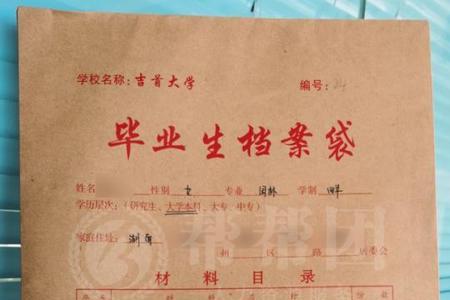 学校名称：吉首大学 编号：24
毕业生档案袋
姓名 性别 女 专业 园林 学制 四年
学历层次：（研究生、大学本科、大专、中专）
家庭住址：湖南 州 区 路 居委会
帮帮团
材料目录